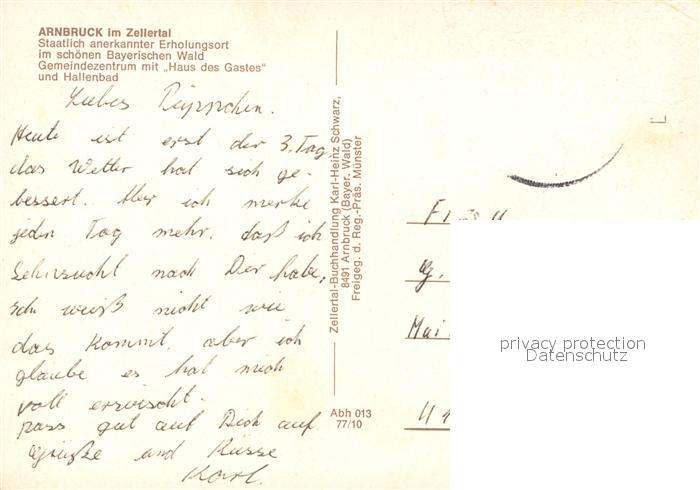 ARNBRUCK im Zellertal
Staatlich anerkannter Erholungsort
im schönen Bayerischen Wald
Gemeindezentrum mit „Haus des Gastes"
und Hallenbad
Liebes Püppchen.
Heute ist erst der 3. Tag
das Wetter hat sich ge-
bessert. Aber ich merke
jeden Tag mehr, daß ich
Sehnsucht nach Dir habe,
ich weiß nicht wie
das kommt, aber ich
glaube es hat mich
voll erwischt.
pass gut auf Dich auf
Grüße und Küsse
Karl.
Zellertal-Buchhandlung Karl-Heinz Schwarz,
8491 Arnbruck (Bayer. Wald)
Freigeg. d. Reg.-Präs. Münster
Abh 013
77/10
Mai
privacy protection
Datenschutz